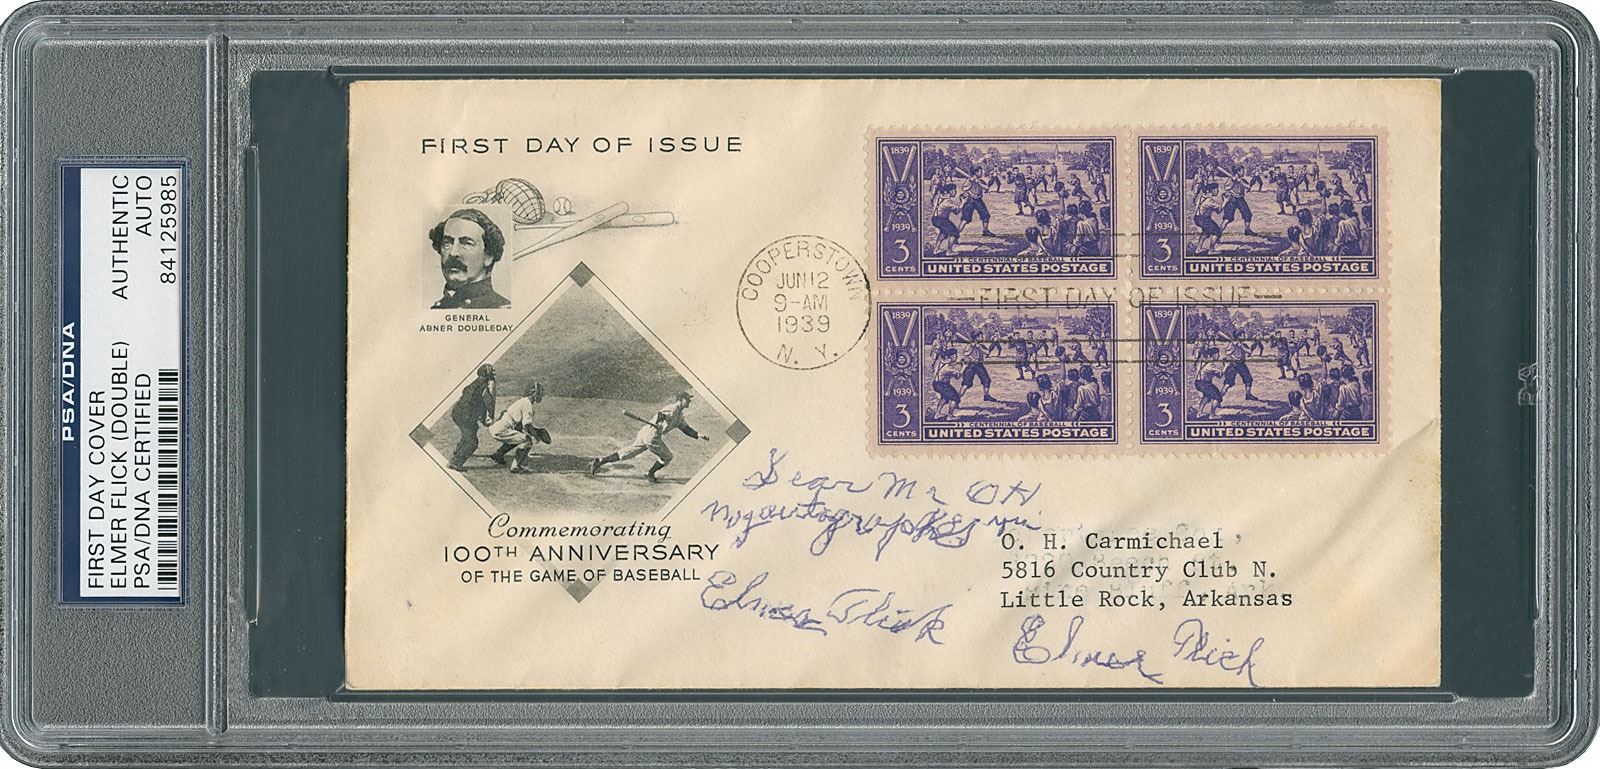 PSA/DNA
FIRST DAY COVER
ELMER FLICK (DOUBLE)
PSA/DNA CERTIFIED
AUTHENTIC
AUTO
84125985
FIRST DAY OF ISSUE
GENERAL
ABNER DOUBLEDAY
Commemorating
100TH ANNIVERSARY
OF THE GAME OF BASEBALL
COOPERSTOWN
JUN 12
9-AM
1939
N. Y.
FIRST DAY OF ISSUE
1839
1939
3
CENTS
CENTENNIAL OF BASEBALL
UNITED STATES POSTAGE
1839
1939
3
CENTS
CENTENNIAL OF BASEBALL
UNITED STATES POSTAGE
1839
1939
3
CENTS
CENTENNIAL OF BASEBALL
UNITED STATES POSTAGE
1839
1939
3
CENTS
CENTENNIAL OF BASEBALL
UNITED STATES POSTAGE
Dear Mr OH
My autographs
Elmer Flick
O. H. Carmichael
5816 Country Club N.
Little Rock, Arkansas
Elmer Flick